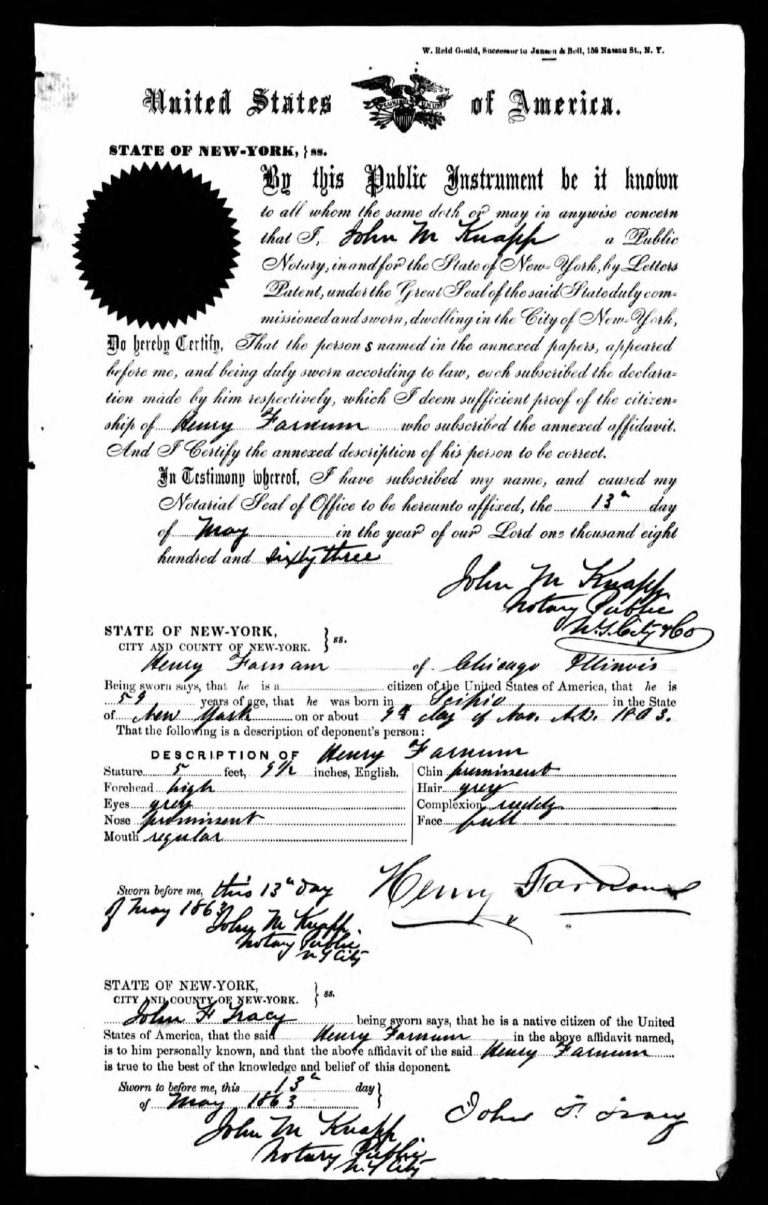 W. Reid Gould, Successor to Jansen & Bell, 156 Nassau St., N. Y.
United States of America.
STATE OF NEW-YORK, } ss.
By this Public Instrument be it known
to all whom the same doth or may in anywise concern
that I, John M Knapp a Public
Notary, in and for the State of New-York, by Letters
Patent, under the Great Seal of the said State duly com-
missioned and sworn, dwelling in the City of New-York,
Do hereby Certify, That the person s named in the annexed papers, appeared
before me, and being duly sworn according to law, each subscribed the declara-
tion made by him respectively, which I deem sufficient proof of the citizen-
ship of Henry Farnum who subscribed the annexed affidavit.
And I Certify the annexed description of his person to be correct.
In Testimony whereof, I have subscribed my name, and caused my
Notarial Seal of Office to be hereunto affixed, the 13th day
of May in the year of our Lord one thousand eight
hundred and sixty three
John M Knapp
Notary Public
N.Y. City & Co
STATE OF NEW-YORK,
CITY AND COUNTY OF NEW-YORK. } ss.
Henry Farnam of Chicago Illinois
Being sworn says, that he is a citizen of the United States of America, that he is
59 years of age, that he was born in Scipio in the State
of New York on or about 9th day of Nov. A.D. 1803.
That the following is a description of deponent's person:
DESCRIPTION OF Henry Farnum
Stature 5 feet, 9 1/2 inches, English.
Forehead high
Eyes grey
Nose prominent
Mouth regular
Chin prominent
Hair grey
Complexion ruddy
Face full
Sworn before me, this 13th day
of May 1863
John M Knapp.
Notary Public
N Y City
Henry Farnam
STATE OF NEW-YORK,
CITY AND COUNTY OF NEW-YORK. } ss.
John F Tracy being sworn says, that he is a native citizen of the United
States of America, that the said Henry Farnum in the above affidavit named,
is to him personally known, and that the above affidavit of the said Henry Farnum
is true to the best of the knowledge and belief of this deponent.
Sworn to before me, this 13th day }
of May 1863
John F. Tracy
John M Knapp
Notary Public
N Y City